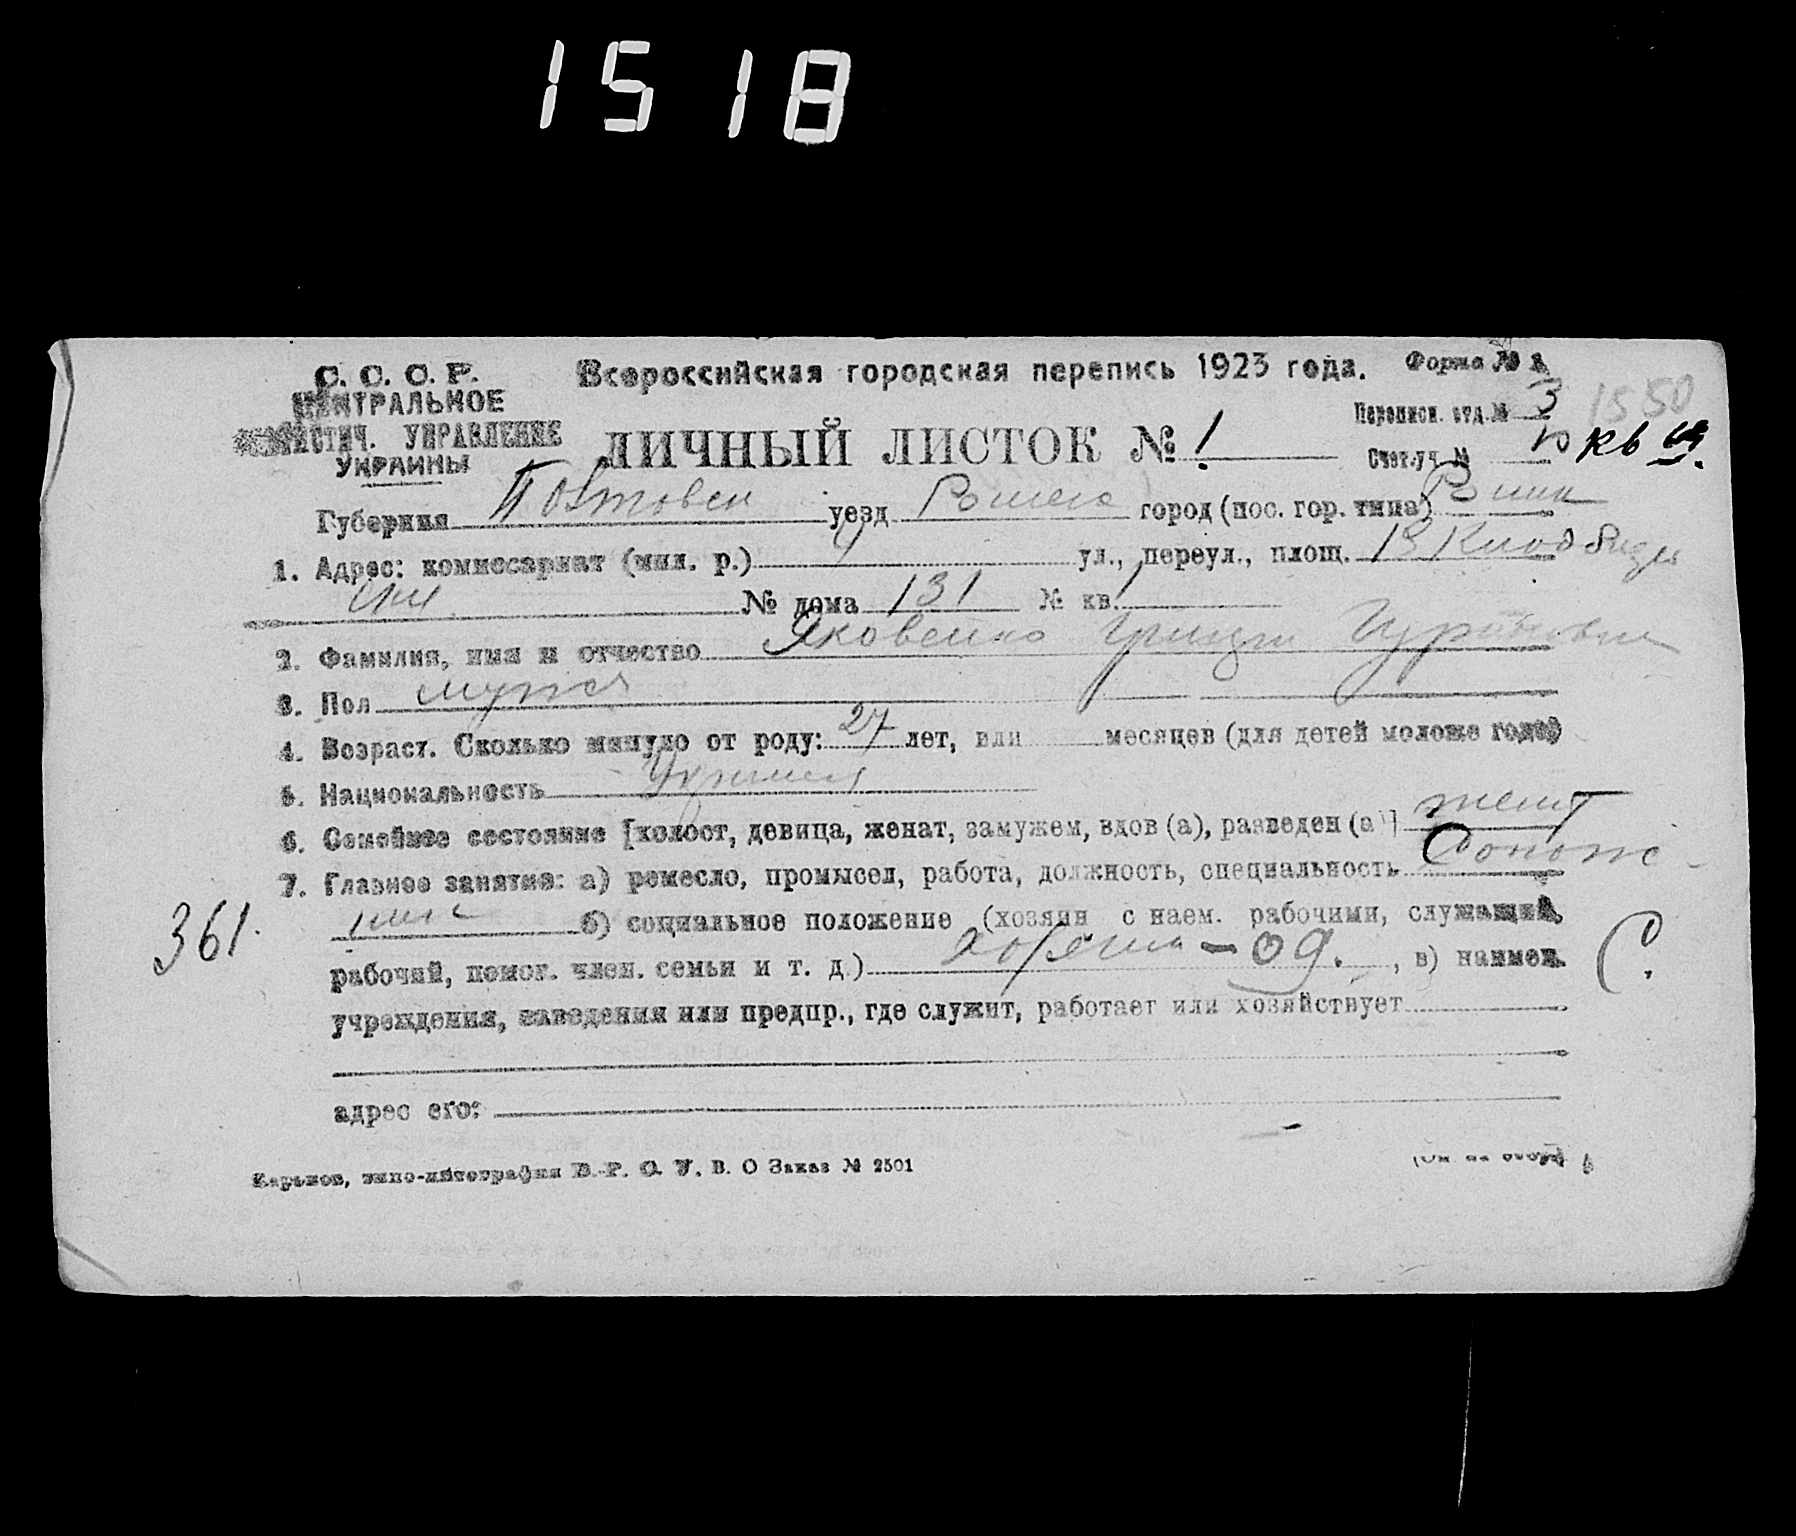 1518
С. С. С. Р.
Всероссийская городская перепись 1923 года.
Форма № 1
ЦЕНТРАЛЬНОЕ
СТАТИСТИЧ. УПРАВЛЕНИЕ
УКРАИНЫ
Переписн. отд. № 3
1550
ЛИЧНЫЙ ЛИСТОК № 1
Счет. уч. № кв
Губерния Полтавск уезд город (пос. гор. типа)
1. Адрес: комиссариат (мил. р.) ул., переул., площ.
№ дома 131 № кв. 1
2. Фамилия, имя и отчество Яковенко
3. Пол мужск
4. Возраст. Сколько минуло от роду: 27 лет, или месяцев (для детей моложе года)
5. Национальность
6. Семейное состояние [холост, девица, женат, замужем, вдов (а), разведен (а)] женат
7. Главное занятие: а) ремесло, промысел, работа, должность, специальность Сапож-
361.
ник б) социальное положение (хозяин с наем. рабочими, служащий,
рабочий, помог. член. семьи и т. д.) хозяин - од. , в) наимен.
учреждения, заведения или предпр., где служит, работает или хозяйствует
адрес его:
Харьков, типо-литография В. Р. О. У. В. О Заказ № 2501